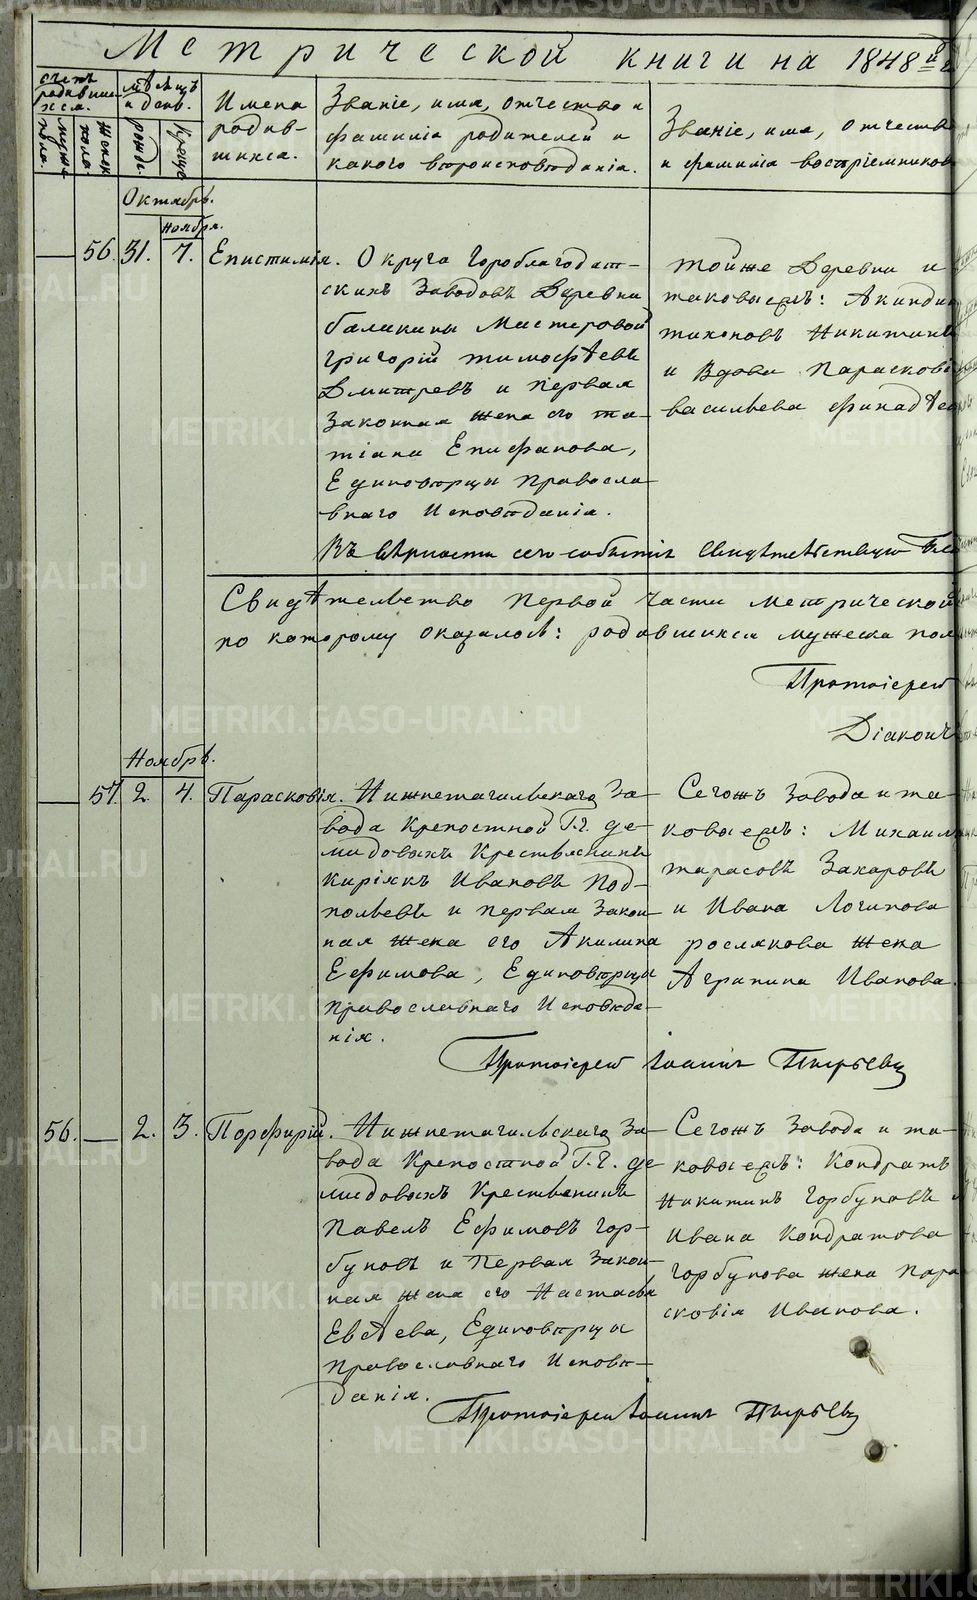 Метрической книги на 1848й
счетъ родившихся.
мѣсяцъ и день.
Имена родив-
шихся.
Званіе, имя, отчество и
фамилія родителей и
какого вѣроисповѣданія.
Званіе, имя, отчество
и фамилія воспріемниковъ
мужска пола.
женск пола.
рожде.
креще
Октябрь.
Ноября.
56. 31. 7. Епистимія.
Округа Гороблагодат-
скихъ Заводовъ Деревни
балакины Мастеровой
григорій тимофѣевъ
Дмитревъ и первая
Законная жена его та-
тіана Епифанова,
Единовѣрцы Правосла-
внаго Исповѣданія.
тойже Деревни и
таковыежъ: Акинди
тихоновъ Никитинъ
и Вдова Параскові
васильева финадѣе
Въ вѣрности сего событія Свидѣтельствую
Свидѣтельство первой части Метрической
по которому оказалось: родившихся мужеска пол
Протоіерей
Діаконъ
Ноябрь.
57. 2. 4. Парасковія.
Нижнетагильскаго За-
вода Крепостной Г.г. де-
мидовыхъ Крестьянинъ
Киріякъ Ивановъ Под-
польевъ и первая Закон-
ная жена его Акилина
Ефимова, Единовѣрцы
православнаго Исповѣда-
нія.
Сегожъ Завода и та-
ковыежъ: Михаил
тарасовъ Захаровъ
и Ивана Логинова
рослякова жена
Агрипина Иванова.
Протоіерей Іоаннъ Пырьевъ
56. 2. 3. Порфирій.
Нижнетагильскаго За-
вода Крепостной Г.г. де
мидовыхъ Крестьянинъ
Павелъ Ефимовъ гор-
буновъ и Первая Закон-
ная жена его Настасья
Евѣева, Единовѣрцы
православнаго Исповѣ-
данія.
Сегожъ Завода и та-
ковыежъ: Кондратъ
Никитинъ Горбуновъ и
Ивана Кондратова
горбунова жена Пара
сковія Иванова.
Протоіерей Іоаннъ Пырьевъ
METRIKI.GASO-URAL.RU